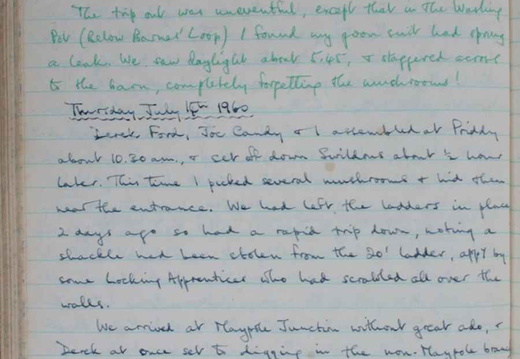 The trip out was uneventful, except that in the Washing
Pot (Below Barnes' Loop) I found my goon suit had sprung
a leak. We saw daylight about 5.45, & staggered across
to the barn, completely forgetting the mushrooms!
Thursday July 1960
Derek Ford, Joe Candy & I assembled at Priddy
about 10.30 am., & set off down Swildons about ½ hour
later. This time I picked several mushrooms & hid them
near the entrance. We had left the ladders in place
2 days ago so had a rapid trip down, noting a
shackle had been stolen from the 20' ladder, app'y by
some Locking Apprentices who had scrabled all over the
walls.
We arrived at Maypole Junction without great ado, &
Derek at once set to digging in the non. Maypole branch